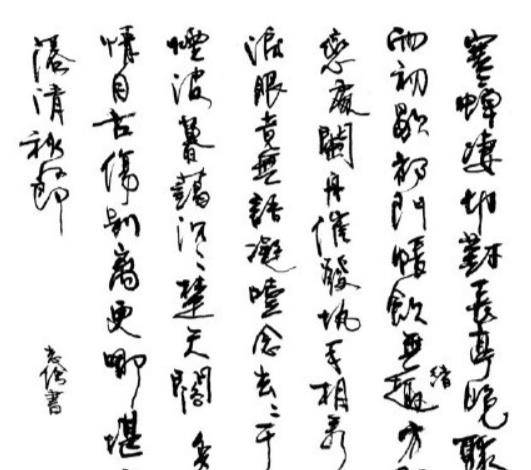 寒蟬淒切對長亭晚驟
雨初歇都門帳飲無趣方
緒
戀處闌舟催發執手相看
淚眼竟無語凝噎念去〻千
煙波暮靄沉〻楚天闊多
情自古傷別離更哪堪
落清秋節
書